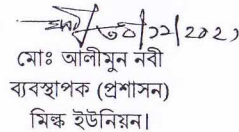 ৩০/১২/২০২১
মোঃ আলীমুন নবী
ব্যবস্থাপক (প্রশাসন)
মিল্ক ইউনিয়ন।